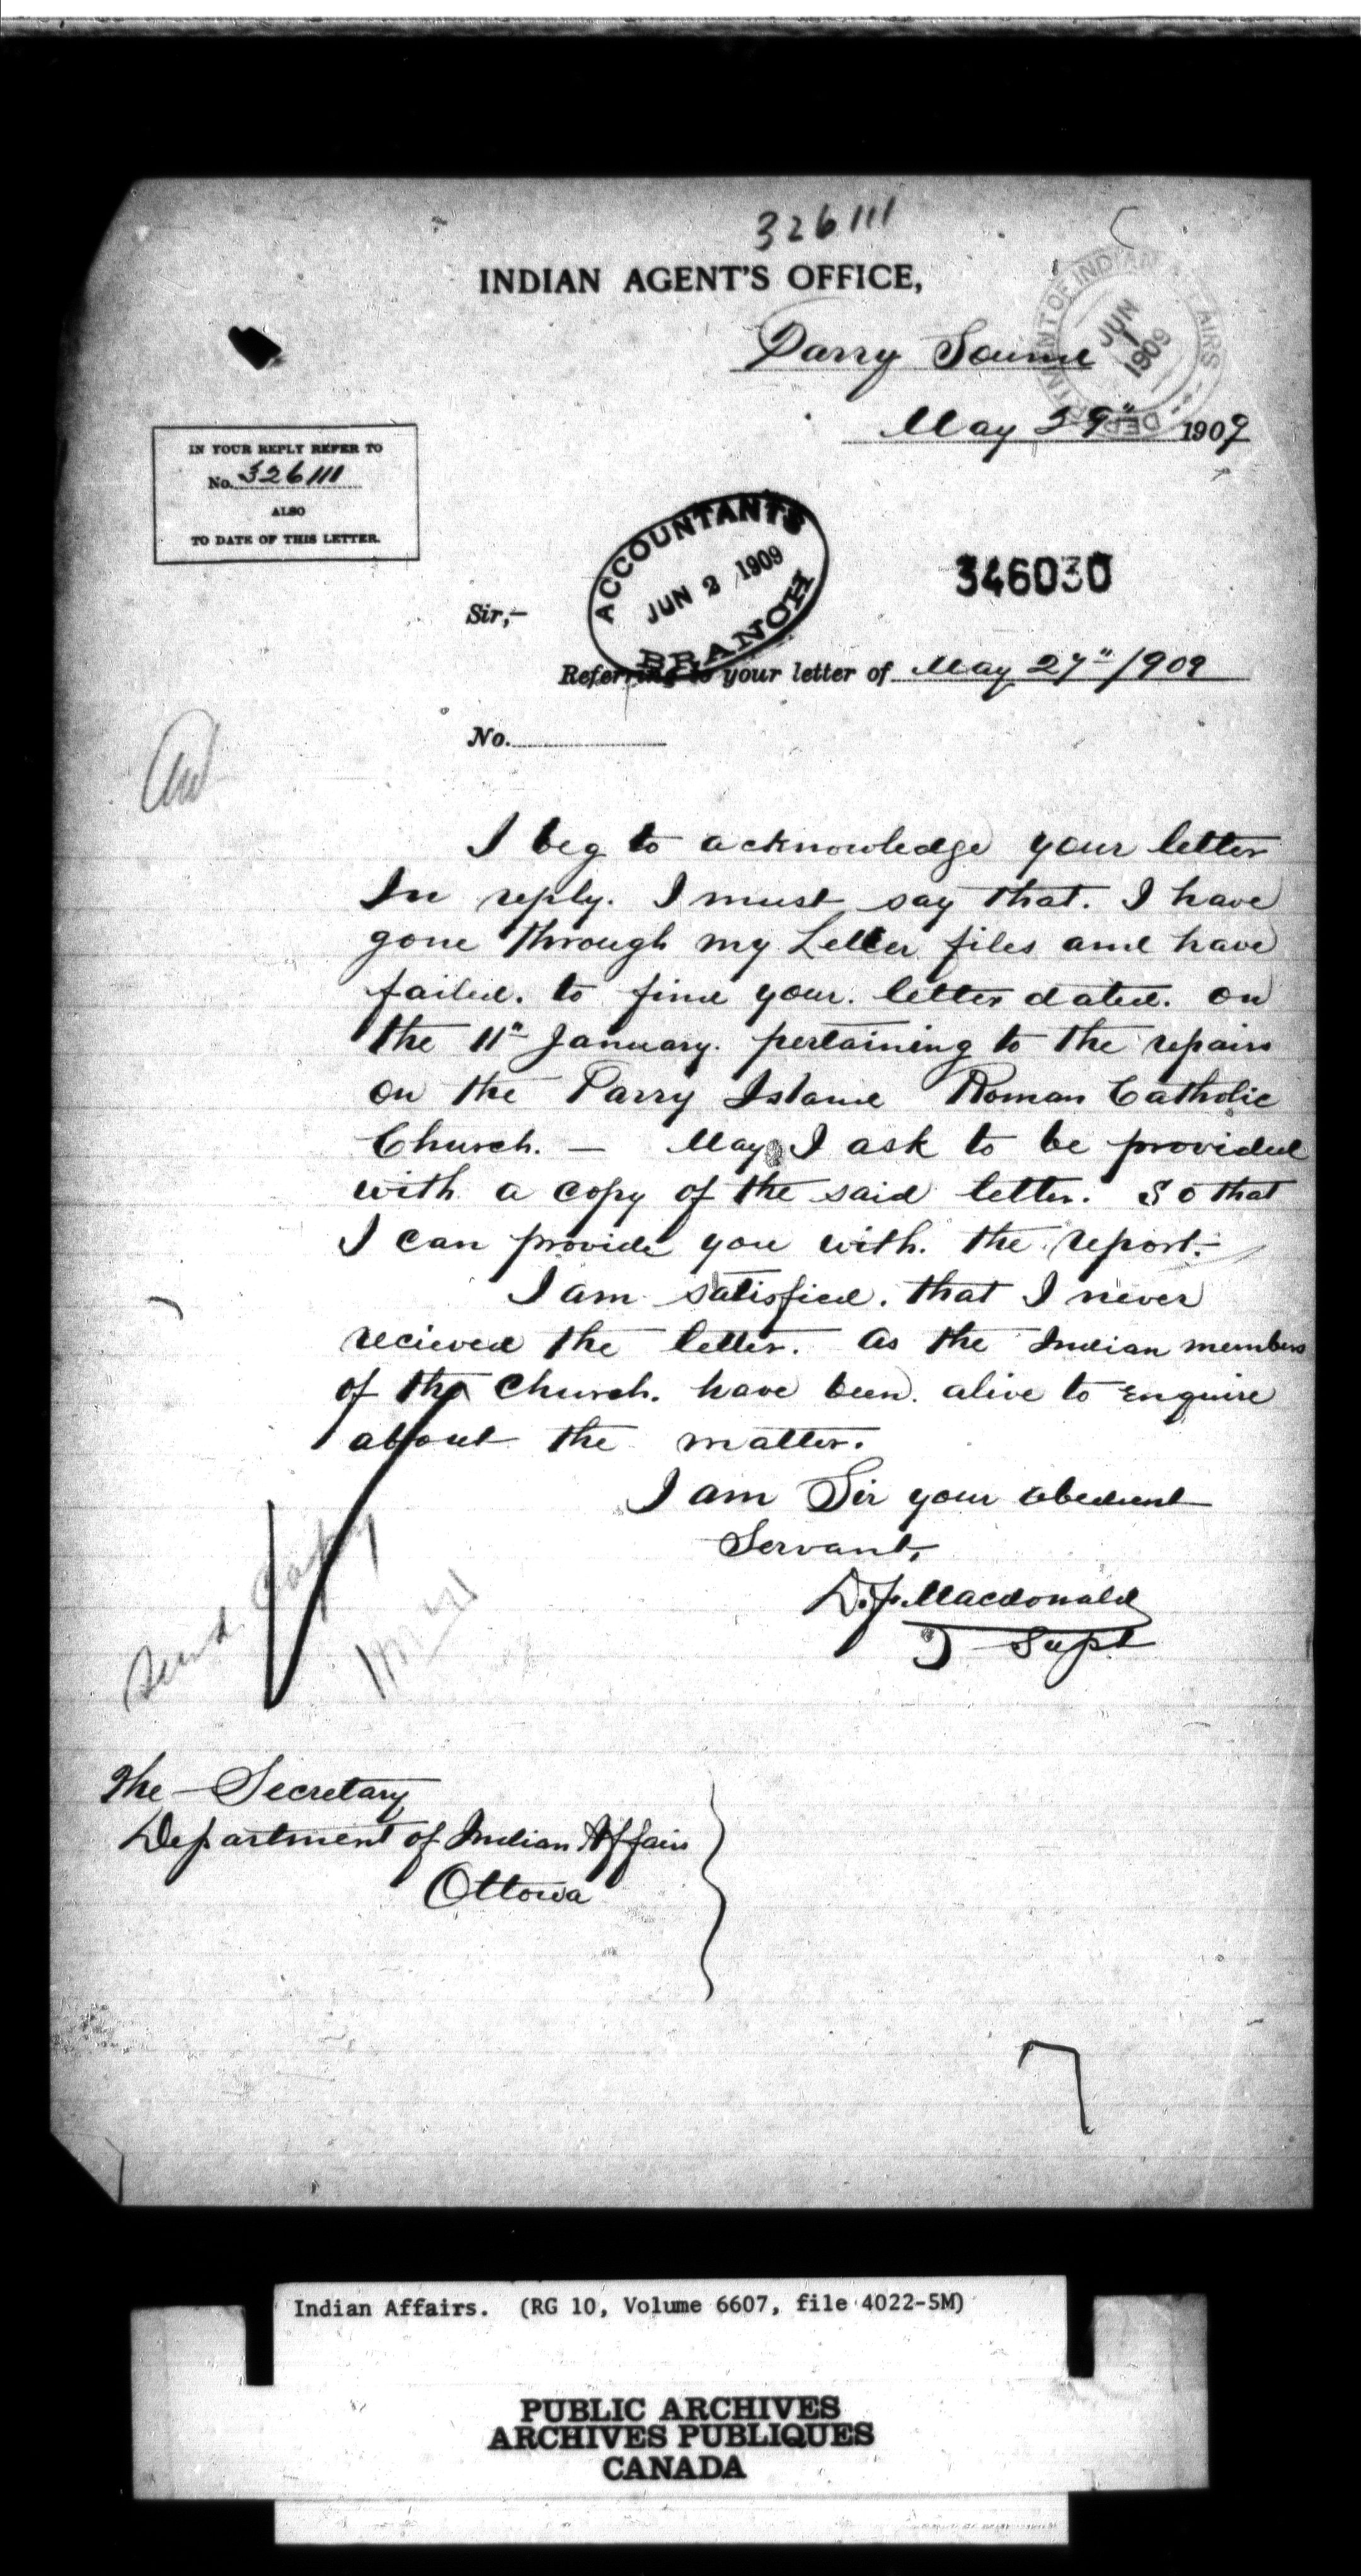 326111
INDIAN AGENT'S OFFICE,
Parry Sound
DEPARTMENT OF INDIAN AFFAIRS
JUN 1 1909
May 29" 1909
IN YOUR REPLY REFER TO
No. 326111
ALSO
TO DATE OF THIS LETTER.
ACCOUNTANTS
JUN 2 1909
BRANCH
346030
Sir,—
Referring to your letter of May 27"/1909
No.
I beg to acknowledge your letter
In reply. I must say that. I have
gone through my Letter files and have
failed. to find your. letter dated. on
the 11" January. pertaining to the repairs
on the Parry Island Roman Catholic
Church. — May I ask to be provided
with a copy of the said letter. So that
I can provide you with. the report.—
I am satisfied. that I never
recieved the letter. as the Indian members
of the Church. have been. alive to Enquire
about the matter.
I am Sir your obedient
Servant,
D.F. Macdonald
I Supt
Send Copy
The Secretary
Department of Indian Affairs
Ottowa
Indian Affairs. (RG 10, Volume 6607, file 4022-5M)
PUBLIC ARCHIVES
ARCHIVES PUBLIQUES
CANADA